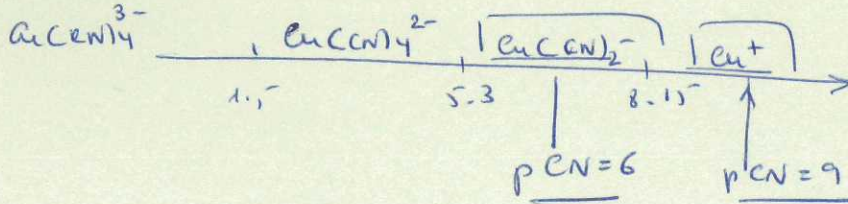 Cu(CN)4^3- Cu(CN)4^2- Cu(CN)2^- Cu+
1,5 5.3 8.15
pCN=6 pCN=9